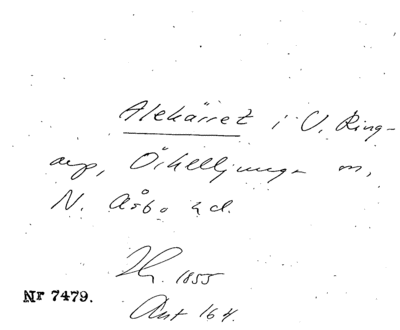 Alekärret i V. Ring-
arp, Örkelljunga sn,
N. Åsbo hd.
1855
Nr 7479.
Ant 164.